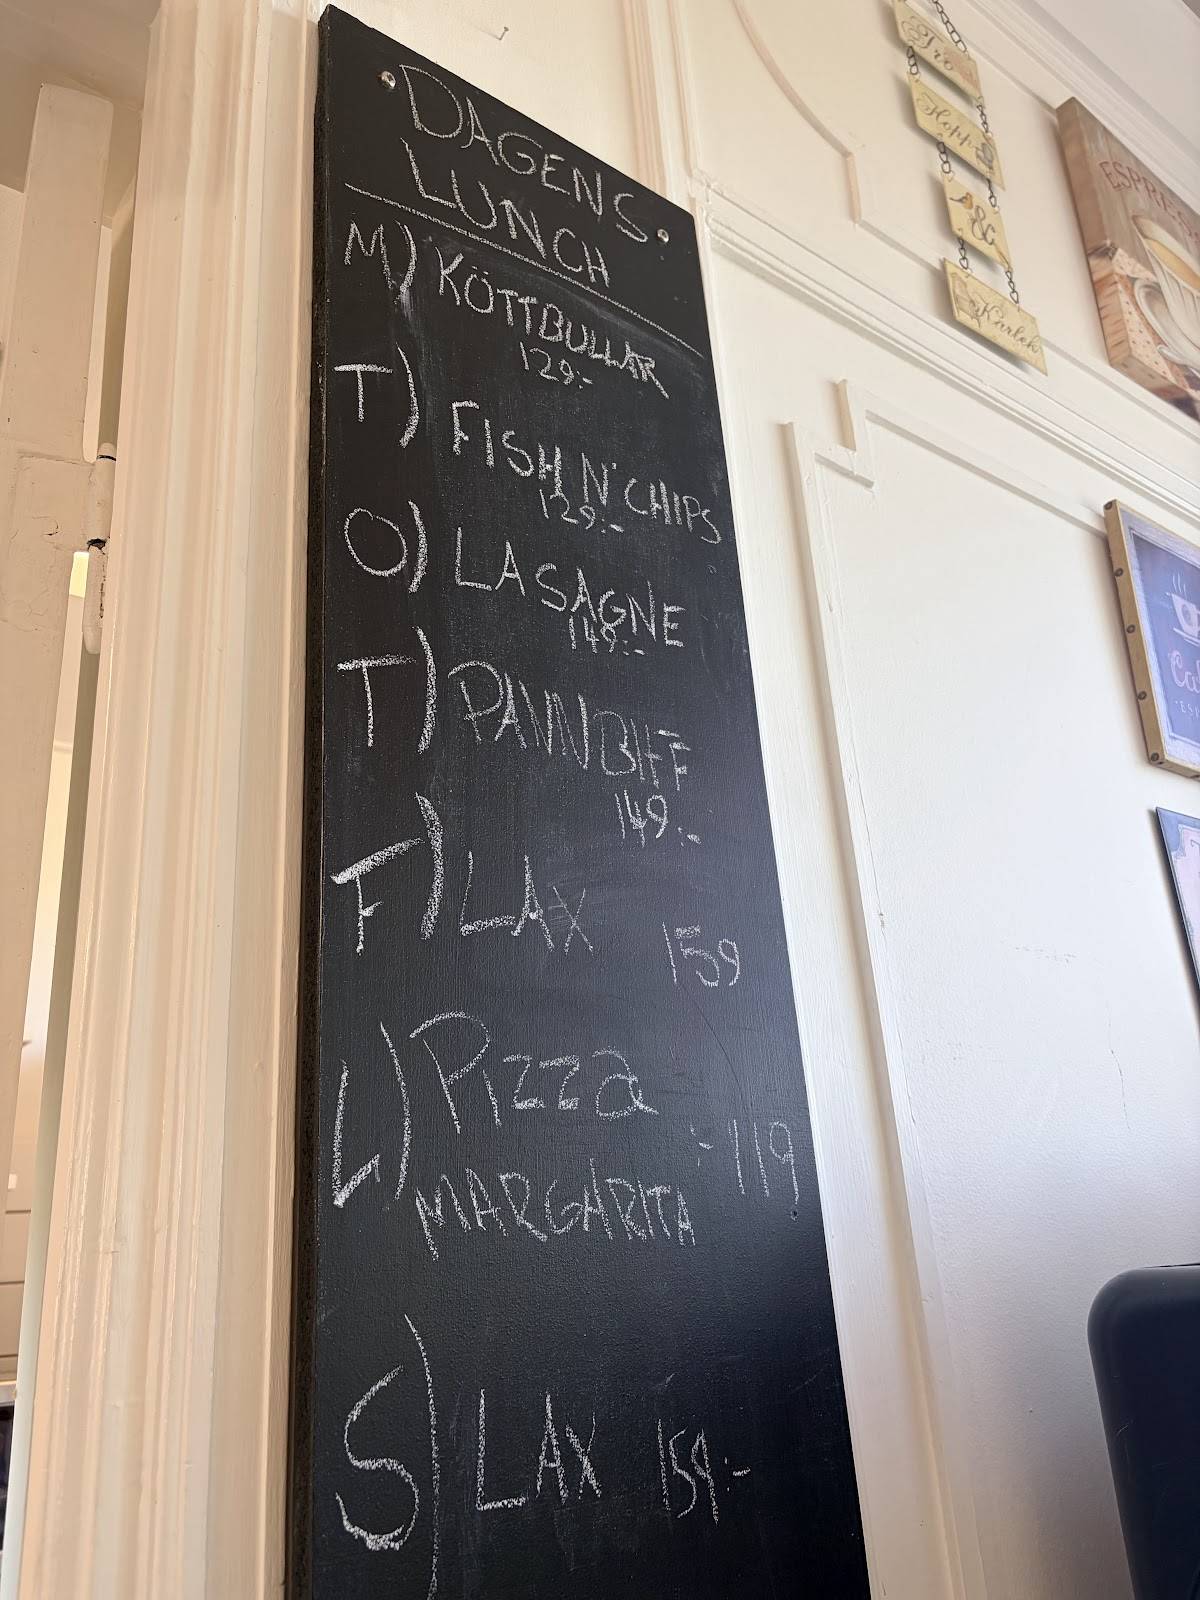 DAGENS
LUNCH
M) KÖTTBULLAR
129:-
T) FISH N' CHIPS
129:-
O) LASAGNE
149:-
T) PANNBIFF
149:-
F) LAX 159
L) Pizza
MARGARITA -119
S) LAX 159:-
Tro
Hopp
&
Kärlek
ESPRES